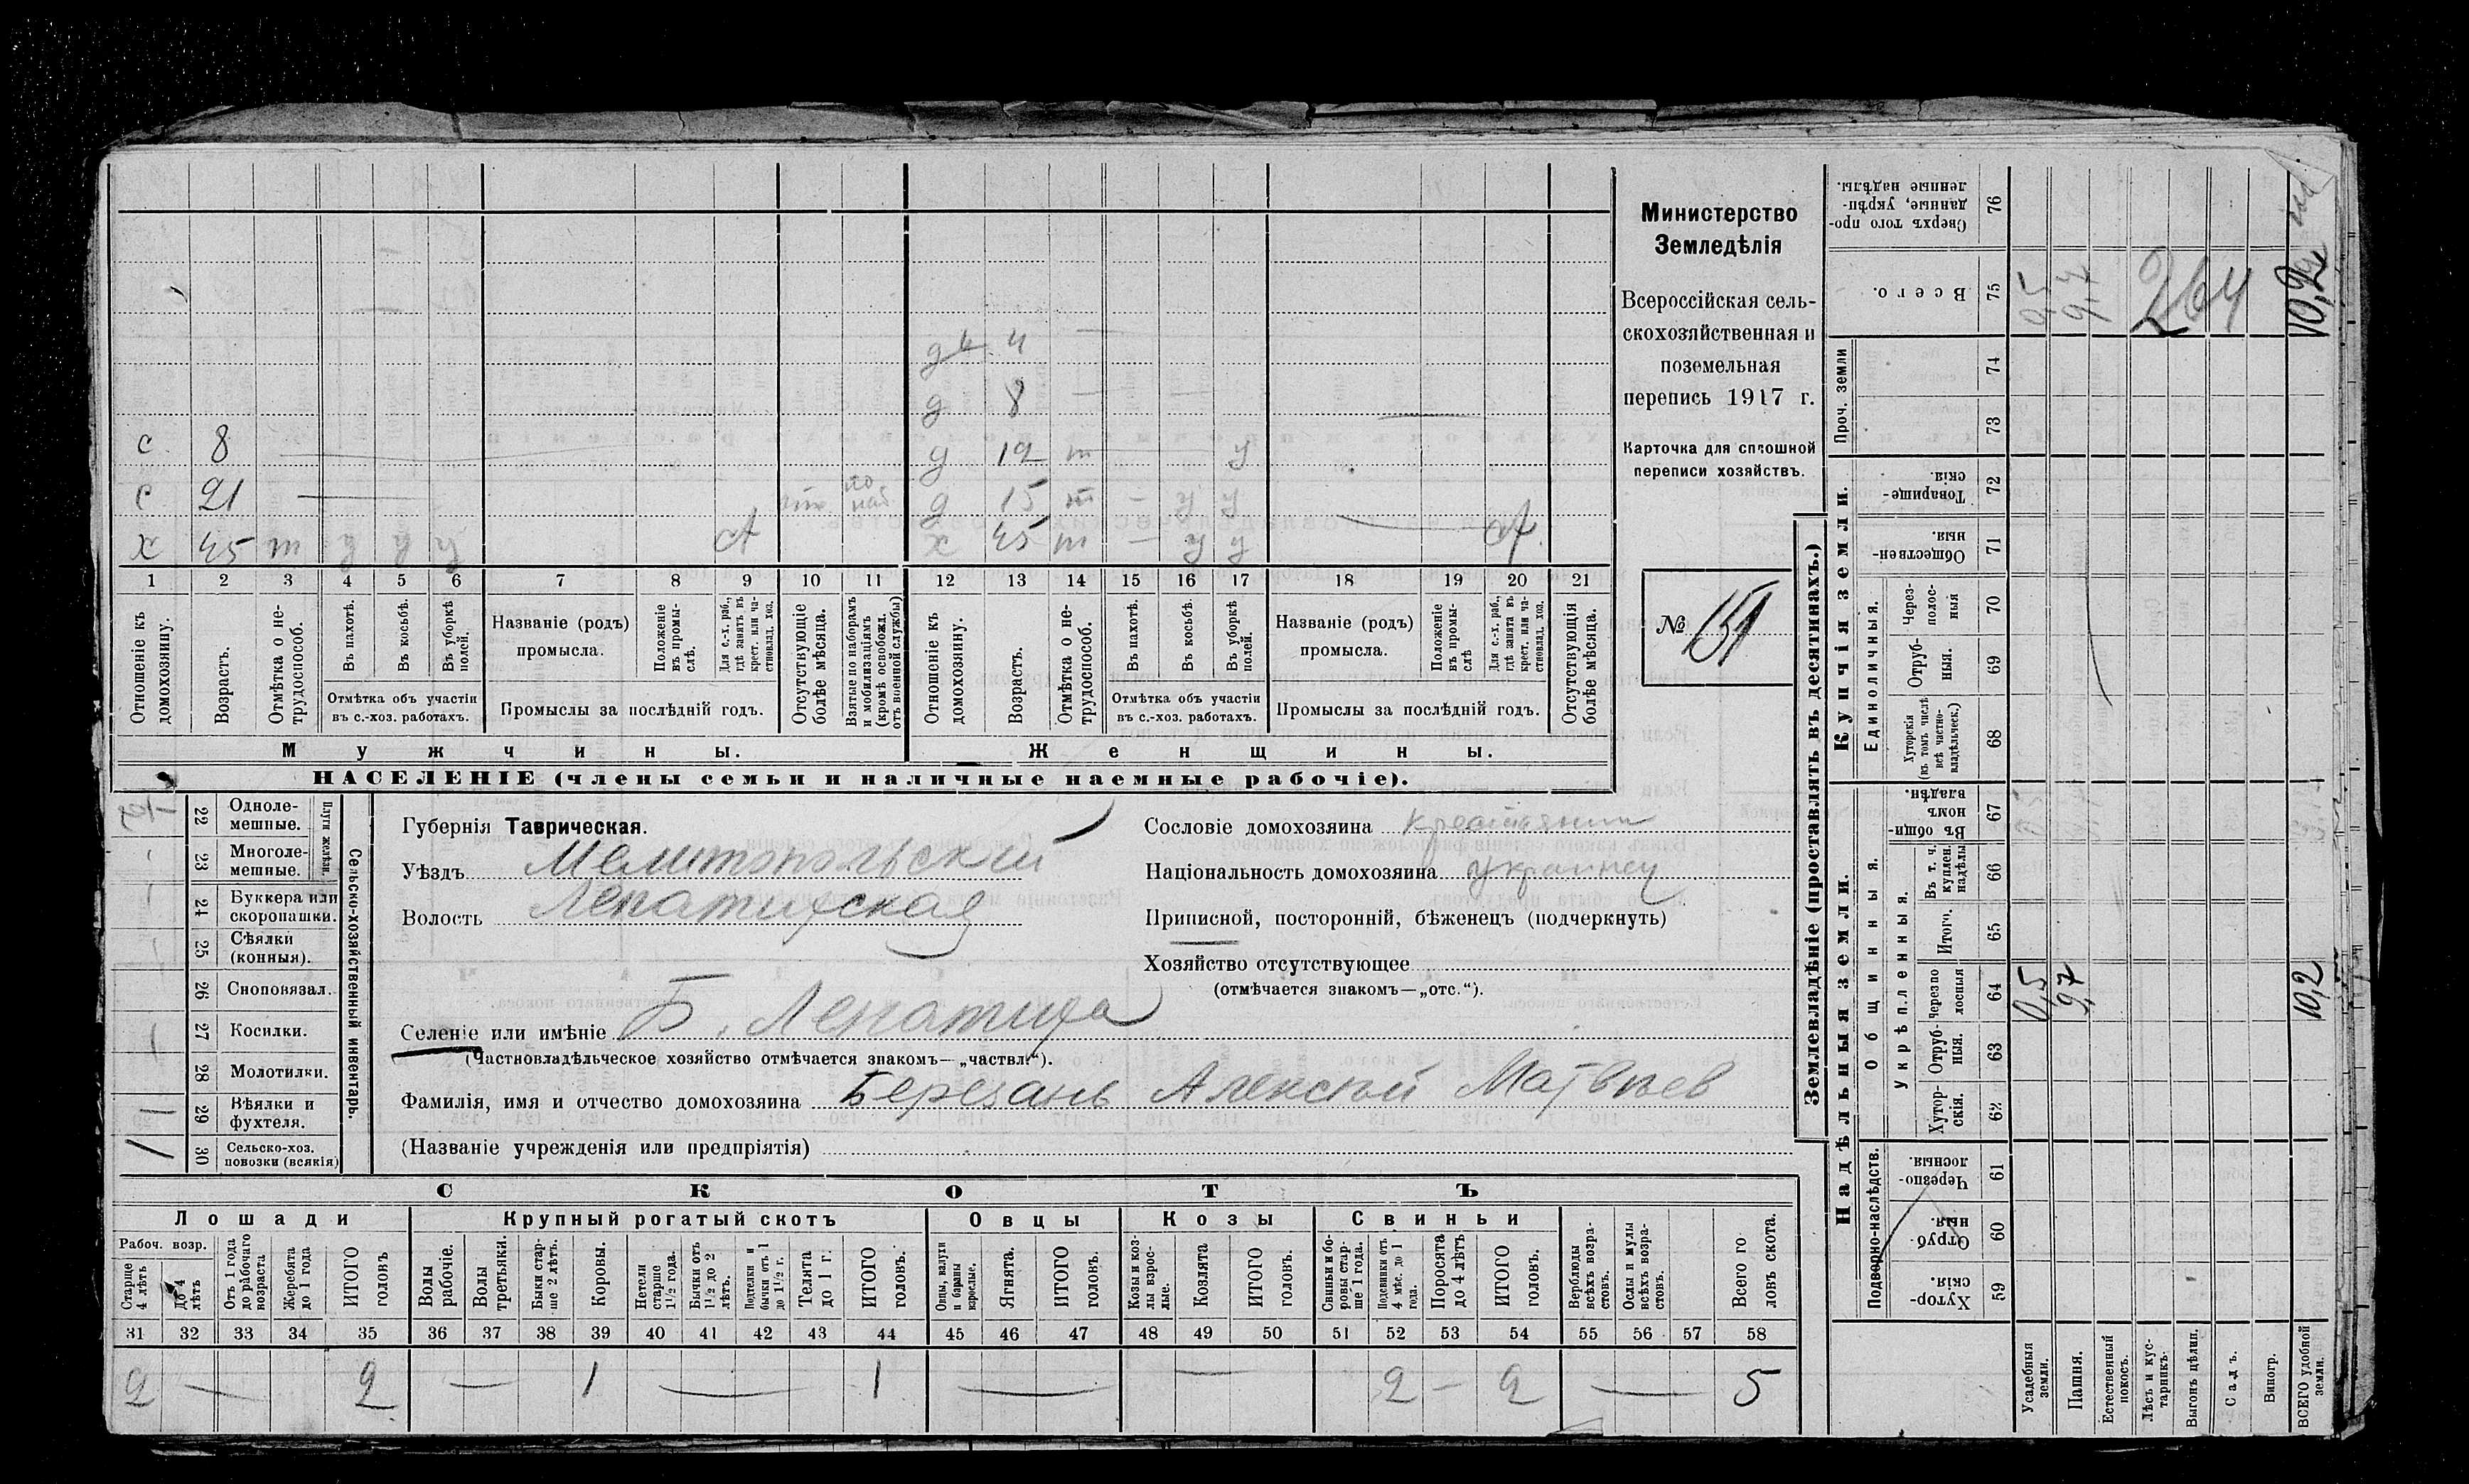 Министерство
Земледѣлія
Всероссійская сель-
скохозяйственная и
поземельная
перепись 1917 г.
Карточка для сплошной
переписи хозяйствъ.
№ 151
дв 4 —
д 8 — —
с. 8 д 12 т — у
с 21 — д 15 т — у у
х 45 т у у у х 45 т — у у
1 2 3 4 5 6 7 8 9 10 11 12 13 14 15 16 17 18 19 20 21
Отношеніе къ домохозяину.
Возрастъ.
Отмѣтка о не-трудоспособ.
Въ пахотѣ.
Въ косьбѣ.
Въ уборкѣ полей.
Отмѣтка объ участіи
въ с.-хоз. работахъ.
Названіе (родъ)
промысла.
Положеніе въ промы-слѣ.
Для с.-х. раб., гдѣ занятъ въ крест. или ча-ствовлад. хоз.
Промыслы за послѣдній годъ.
Отсутствующіе болѣе мѣсяца.
Взятые по наборамъ и мобилизаціямъ (кромѣ освобожд. отъ военной службы)
Отношеніе къ домохозяину.
Возрастъ.
Отмѣтка о не-трудоспособ.
Въ пахотѣ.
Въ косьбѣ.
Въ уборкѣ полей.
Отмѣтка объ участіи
въ с.-хоз. работахъ.
Названіе (родъ)
промысла.
Положеніе въ промы-слѣ
Для с.-х. раб., гдѣ занята въ крест. или ча-ствовлад. хоз.
Промыслы за послѣдній годъ.
Отсутствующія болѣе мѣсяца.
Мужчины. Женщины.
НАСЕЛЕНІЕ (члены семьи и наличные наемные рабочіе).
22 Одноле-мешные.
Плуги желѣзн.
23 Многоле-мешные.
24 Буккера или скоропашки.
25 Сѣялки (конныя).
26 Сноповязал.
27 Косилки.
28 Молотилки.
29 Вѣялки и фухтеля.
30 Сельско-хоз. повозки (всякія)
Сельско-хозяйственный инвентарь.
Губернія Таврическая.
Уѣздъ Мелитопольский
Волость Лепатихская
Сословіе домохозяина крестьянин
Національность домохозяина украинец
Приписной, посторонній, бѣженецъ (подчеркнуть)
Хозяйство отсутствующее
(отмѣчается знакомъ—„отс.“).
Селеніе или имѣніе Б. Лепатиха
(Частновладѣльческое хозяйство отмѣчается знакомъ—„частвл.“).
Фамилія, имя и отчество домохозяина Березань Алексѣй Матвѣев
(Названіе учрежденія или предпріятія)
СКОТЪ
Лошади Крупный рогатый скотъ Овцы Козы Свиньи
Рабоч. возр.
Старше 4 лѣтъ
До 4 лѣтъ
Отъ 1 года до рабочаго возраста
Жеребята до 1 года
ИТОГО головъ
Волы рабочіе.
Волы третьяки.
Быки стар-ше 2 лѣтъ.
Коровы.
Нетели старше 1½ года.
Бычки отъ 1½ до 2 лѣтъ.
Подтелки и бычки отъ 1 до 1½ г.
Телята до 1 г.
ИТОГО головъ.
Овцы, валухи и бараны взрослые.
Ягнята.
ИТОГО головъ.
Козы и коз-лы взрос-лые.
Козлята
ИТОГО головъ.
Свиньи и бо-ровы стар-ше 1 года.
Подсвинки отъ 4 мѣс. до 1 года.
Поросята до 4 лѣтъ
ИТОГО головъ.
Верблюды всѣхъ возра-стовъ.
Ослы и мулы всѣхъ возра-стовъ.
Всего го ловъ скота.
31 32 33 34 35 36 37 38 39 40 41 42 43 44 45 46 47 48 49 50 51 52 53 54 55 56 57 58
2 — 2 — 1 — 1 — — 2 — 2 — 5
Землевладѣніе (проставлять въ десятинахъ.)
Надѣльныя земли. Купчія земли.
Подворно-наслѣдств.
Общинныя.
Укрѣпленныя.
Единоличныя.
Проч. земли
Хутор-скія. 59
Отруб-ныя. 60
Черезпо-лосныя. 61
Хутор-скія. 62
Отруб-ныя. 63
Черезпо лосныя 64
Итого. 65
Въ т. ч. куплен. надѣлы 66
Въ общин-номъ владѣн. 67
Хуторскія (въ томъ числѣ всѣ частно-владѣльческ.) 68
Отруб-ныя. 69
Через-полос-ныя 70
Обществен-ныя. 71
Товарище-скія. 72
73
74
Всего. 75
Сверхъ того про-данные, укрѣп-ленные надѣлы. 76
Усадебныя земли. 0,5 0,5
Пашня. 9,7 9,7
Естественный покосъ.
Лѣсъ и кус-тарникъ. 264
Выгонъ цѣлин.
Садъ.
Виногр.
ВСЕГО удобной земли. 10,2 10,2